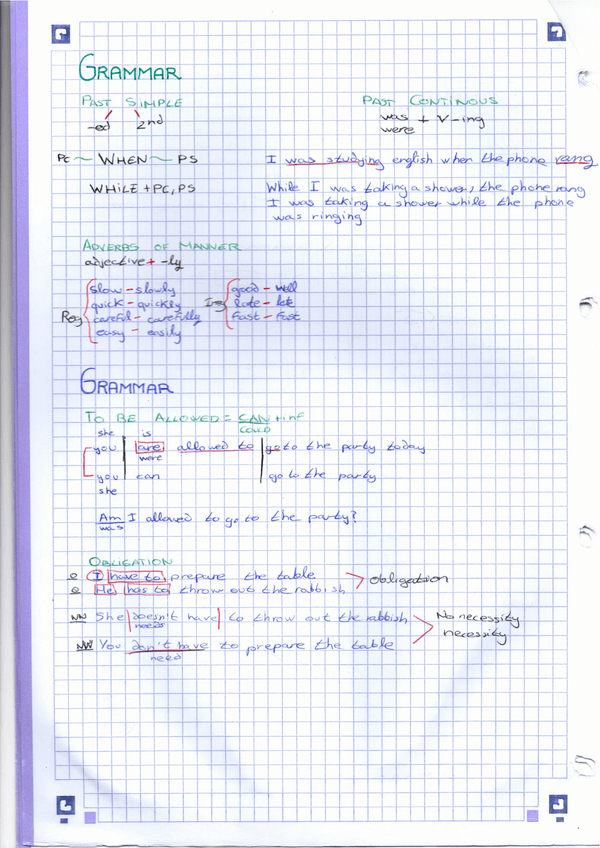 GRAMMAR
PAST SIMPLE PAST CONTINOUS
-ed 2nd was + V-ing
were
PC ~ WHEN ~ PS I was studying english when the phone rang
WHILE + PC, PS While I was taking a shower, the phone rang
I was taking a shower while the phone
was ringing
ADVERBS OF MANNER
adjective + -ly
slow - slowly good - well
quick - quickly late - late
Reg careful - carefully Irreg fast - fast
easy - easily
GRAMMAR
TO BE ALLOWED = CAN + inf
COULD
she is
you are allowed to go to the party today
were
you can go to the party
she
Am I allowed to go to the party?
was
OBLIGATION
O I have to prepare the table obligation
O He has to throw out the rabbish
NN She doesn't have to throw out the rabbish No necessity
needs necessity
NN You don't have to prepare the table
need